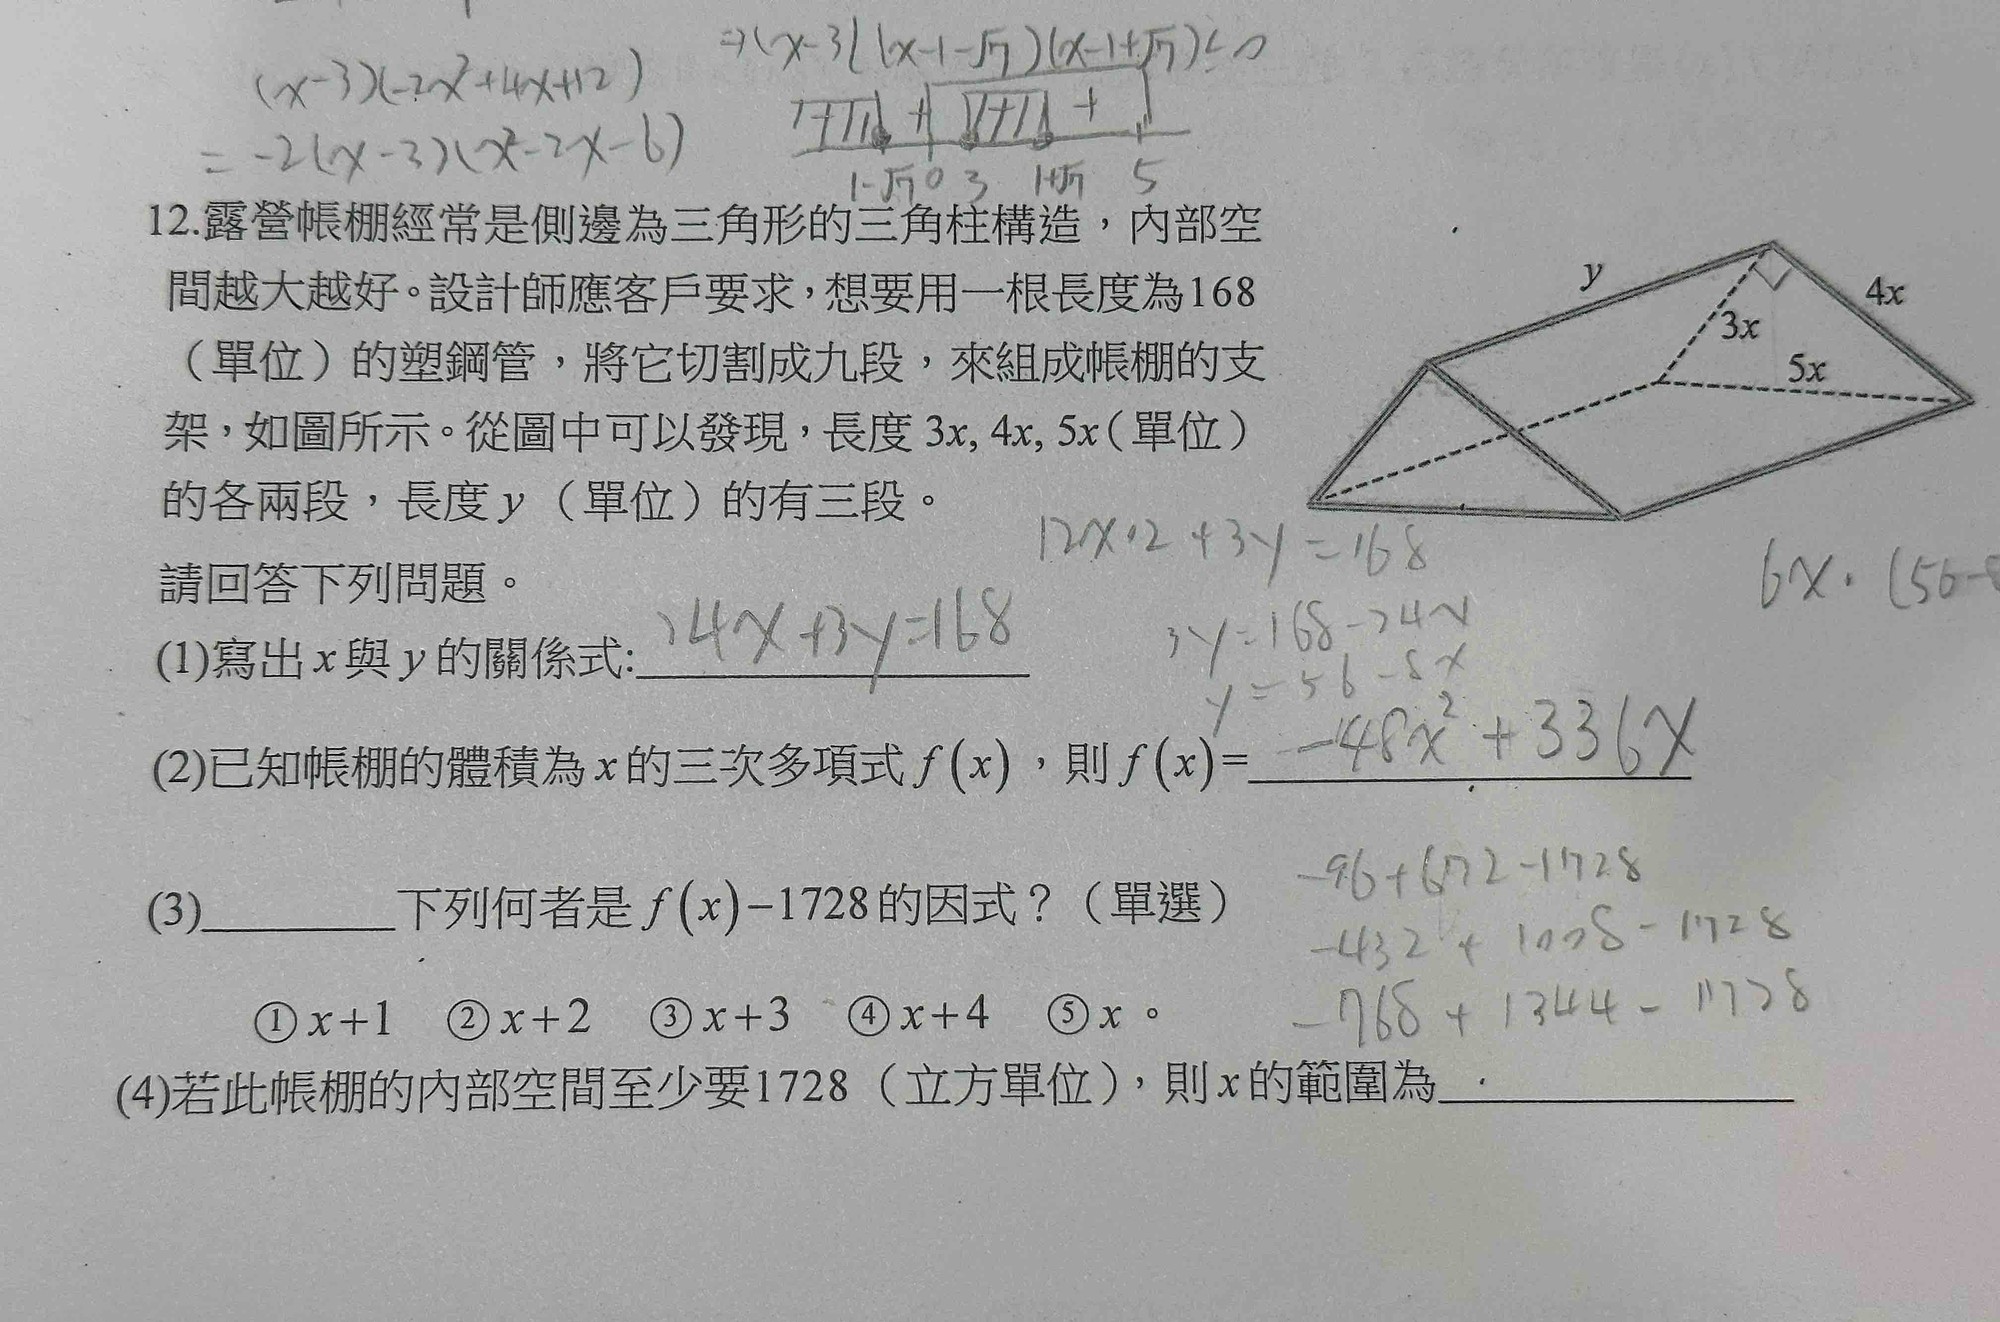 ⇒(x-3)(x-1-√7)(x-1+√7)≤0
(x-3)(-2x²+4x+12)
= -2(x-3)(x²-2x-6)
+ + + +
1-√7 0 3 1+√7 5
12.露營帳棚經常是側邊為三角形的三角柱構造，內部空
間越大越好。設計師應客戶要求，想要用一根長度為168
（單位）的塑鋼管，將它切割成九段，來組成帳棚的支
架，如圖所示。從圖中可以發現，長度 3x, 4x, 5x（單位）
的各兩段，長度 y （單位）的有三段。
請回答下列問題。
y
4x
3x
5x
12x·2+3y=168
3y=168-24x
y=56-8x
6x·(56-8
(1)寫出 x 與 y 的關係式: 24x+3y=168
(2)已知帳棚的體積為 x 的三次多項式 f(x)，則 f(x)= -48x²+336x
-96+672-1728
(3)________下列何者是 f(x)−1728的因式？（單選）
-432+1008-1728
-768+1344-1728
①x+1 ②x+2 ③x+3 ④x+4 ⑤x。
(4)若此帳棚的內部空間至少要1728（立方單位），則 x 的範圍為________